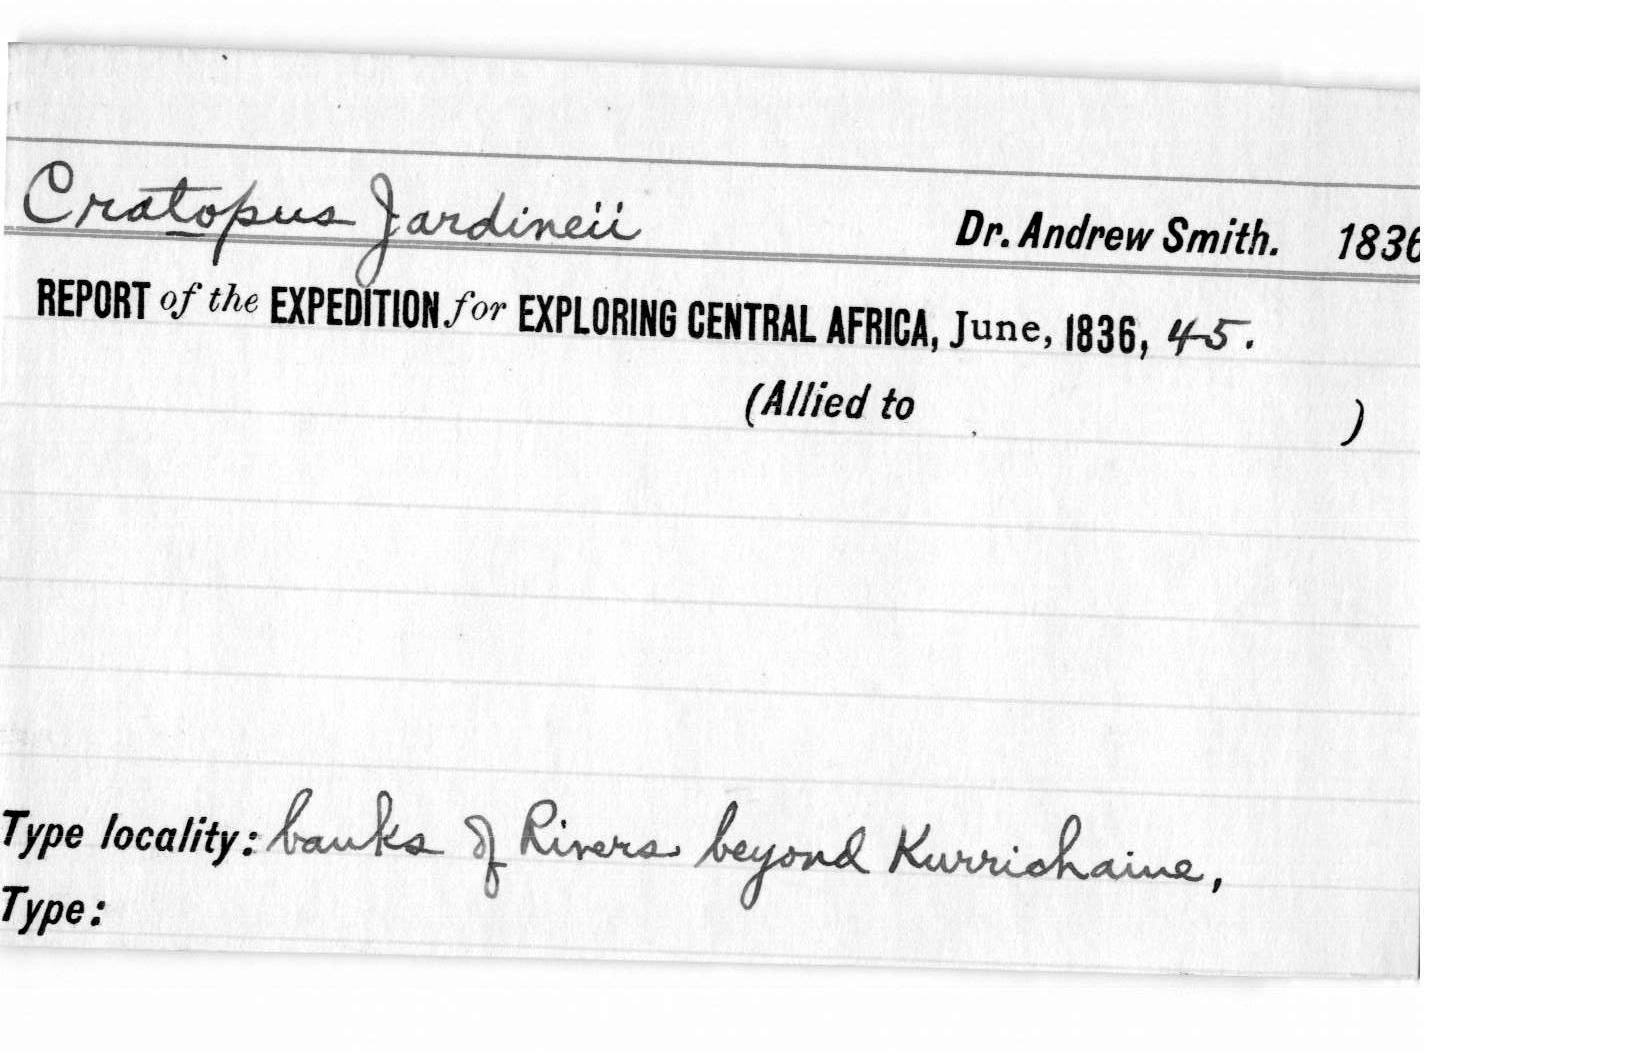 Cratopus Jardineii Dr. Andrew Smith. 1836
REPORT of the EXPEDITION for EXPLORING CENTRAL AFRICA, June, 1836, 45.
(Allied to )
Type locality: banks of Rivers beyond Kurrichaine,
Type: